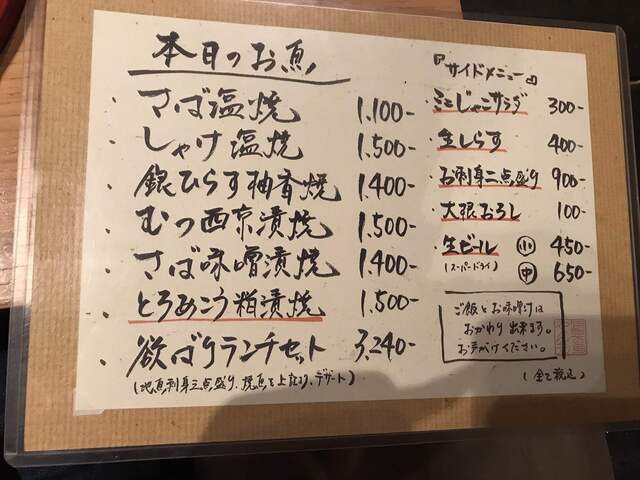 本日のお魚
・さば塩焼 1.100-
・しゃけ塩焼 1.500-
・銀ひらす柚香焼 1.400-
・むつ西京漬焼 1.500-
・さば味噌漬焼 1.400-
・とろあこう粕漬焼 1.500-
・欲ばりランチセット 3.240-
(地魚刺身三点盛り、焼魚と上なり、デザート)
『サイドメニュー』
・ミニじゃこサラダ 300-
・生しらす 400-
・お刺身二点盛り 900-
・大根おろし 100-
・生ビール 小 450-
(スーパードライ) 中 650-
ご飯とお味噌汁は
おかわり出来ます。
お声がけください。
(全て税込)